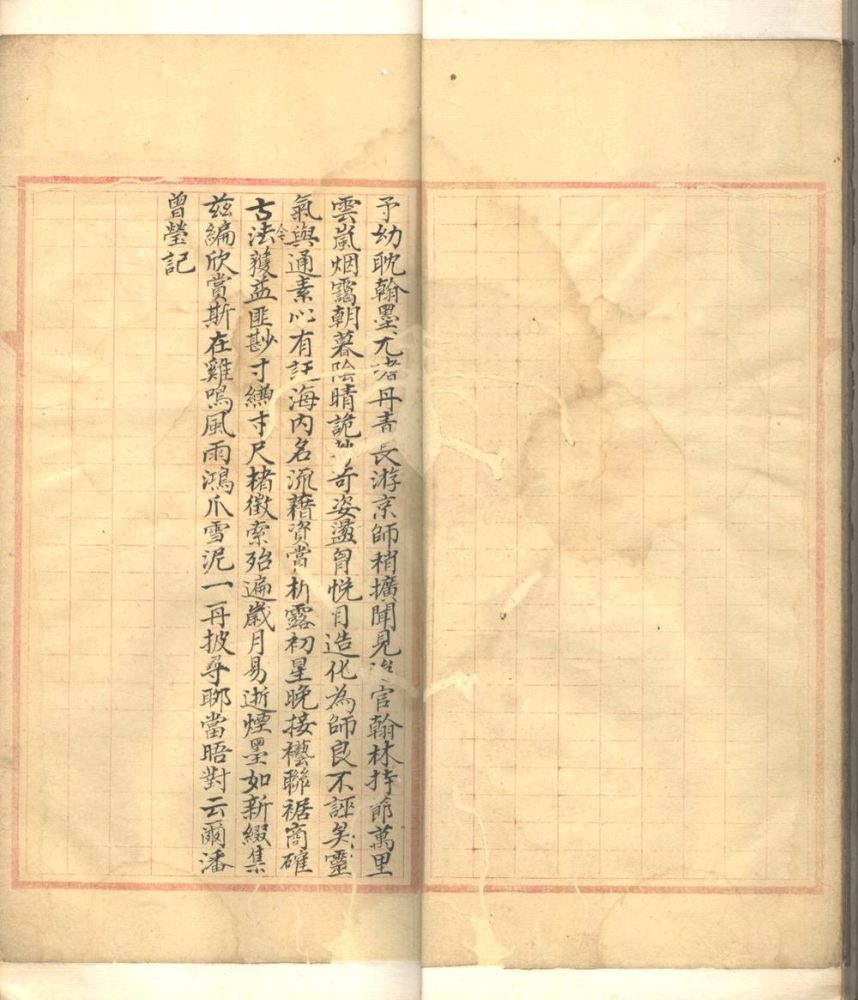 予幼耽翰墨尤耆丹青長游京師稍擴聞見官翰林持節萬里
雲嵐烟靄朝暮陰晴詭奇姿盪胷悅目造化為師良不誣矣靈
氣與通素心有託海内名流藉資賞析露初星晚接襼聯裾商確
古今法䕶益匪尠寸縑寸尺楮徵索殆遍歲月易逝煙墨如新綴集
茲編欣賞斯在雞鳴風雨鴻爪雪泥一再披尋聊當晤對云爾潘
曾瑩記